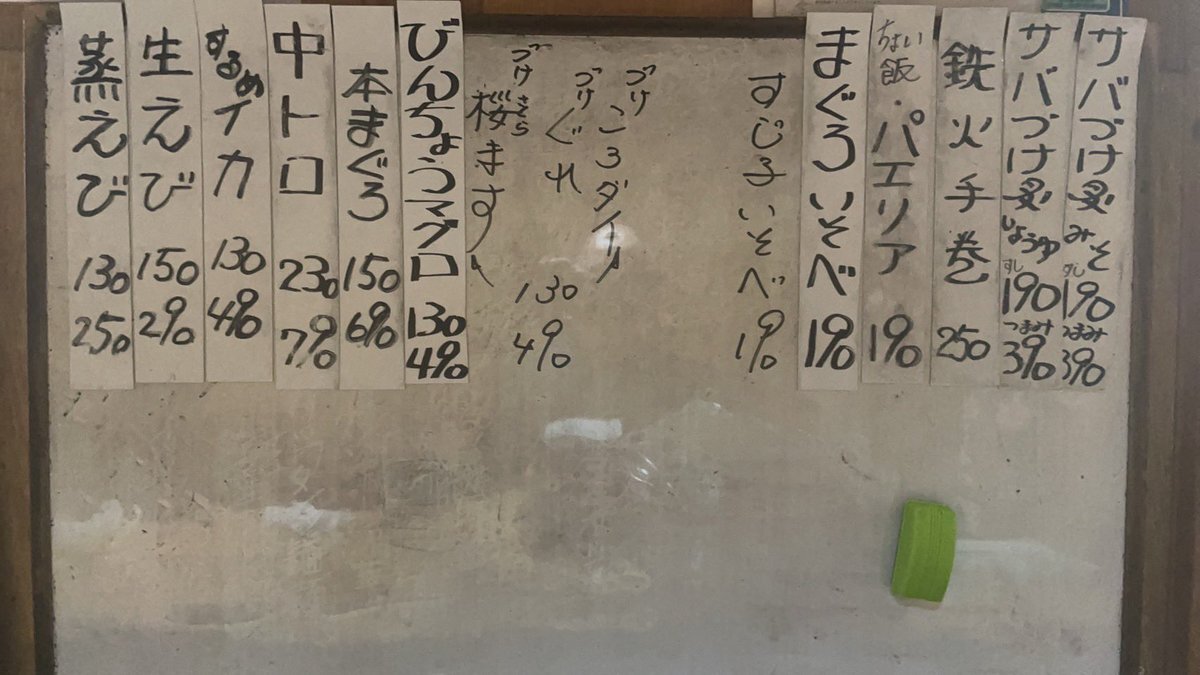 サバづけ炙みそ すし190 つまみ390
サバづけ炙しょうゆ すし190 つまみ390
鉄火手巻 250
ちょい飯・パエリア 190
まぐろいそべ 190
すじ子いそべ 190
づけころダイ
づけぐれ
づけ桜ます さくら
130
490
びんちょうマグロ 130 490
本まぐろ 150 690
中トロ 230 790
するめイカ 130 490
生えび 150 290
蒸えび 130 250